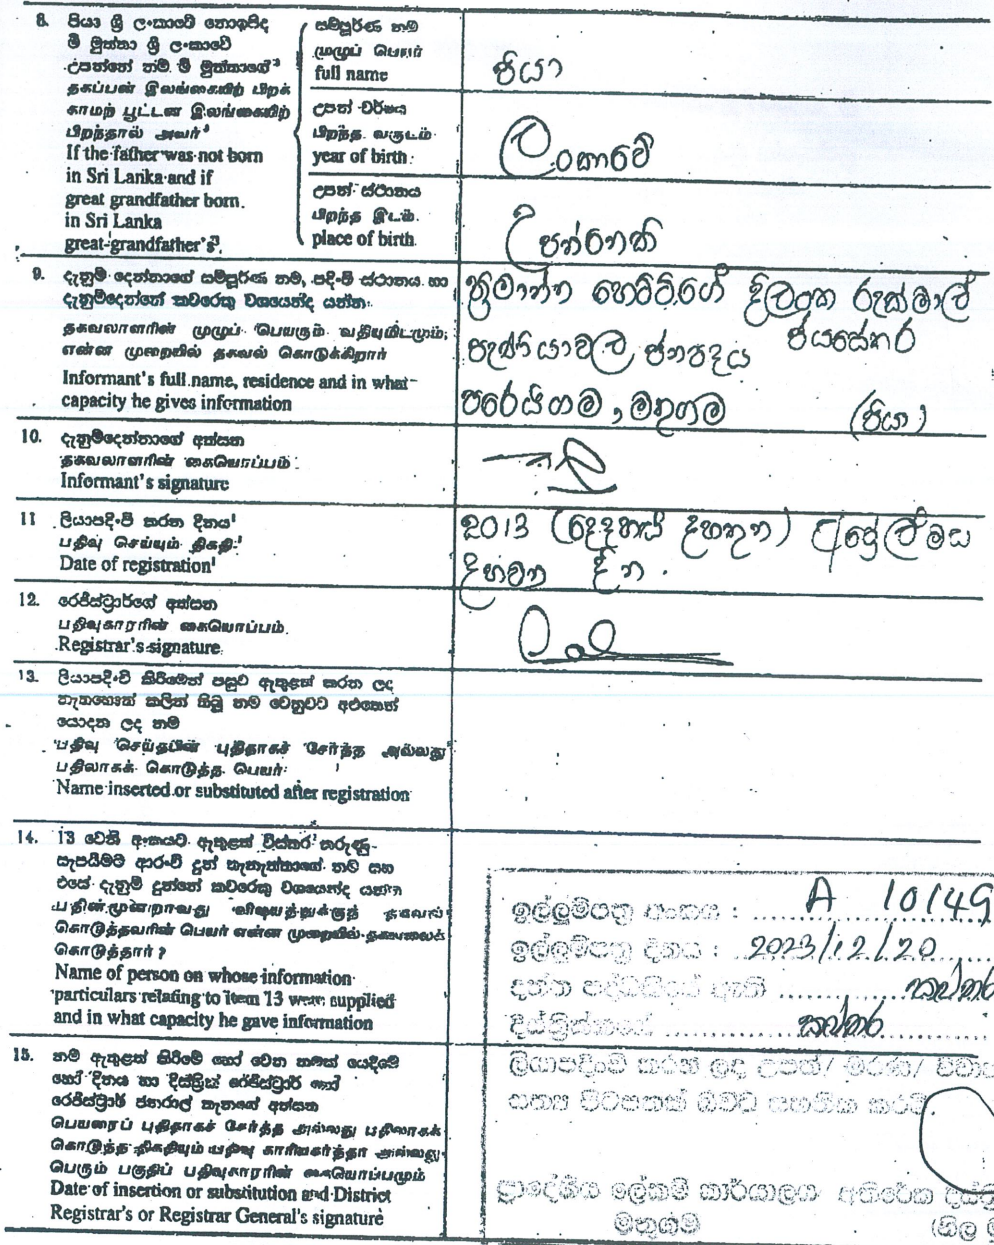 8. පියා ශ්‍රී ලංකාවේ නොඉපිද
මී මුත්තා ශ්‍රී ලංකාවේ
උපන්නේ නම් මී මුත්තාගේ
தகப்பன் இலங்கையிற் பிறக்
காமற் பூட்டன் இலங்கையிற்
பிறந்தால் அவர்
If the father was not born
in Sri Lanka and if
great grandfather born
in Sri Lanka
great-grandfather's
සම්පූර්ණ නම
முழுப் பெயர்
full name
පියා
උපන් වර්ෂය
பிறந்த வருடம்
year of birth
ලංකාවේ
උපන් ස්ථානය
பிறந்த இடம்
place of birth
උපන්නෙකි
9. දැනුම් දෙන්නාගේ සම්පූර්ණ නම, පදිංචි ස්ථානය හා
දැනුම්දෙන්නේ කවරෙකු වශයෙන්ද යන්න
தகவலாளரின் முழுப் பெயரும் வதியுமிடமும்,
என்ன முறையில் தகவல் கொடுக்கிறார்
Informant's full name, residence and in what
capacity he gives information
හෙට්ටිගේ දිලංක රුක්මාල්
ජයසේකර
පැණියාවල, ජනපදය
මතුගම (පියා)
10. දැනුම්දෙන්නාගේ අත්සන
தகவலாளரின் கையொப்பம்
Informant's signature
11 ලියාපදිංචි කරන දිනය
பதிவு செய்யும் திகதி
Date of registration
2013 (දෙදහස් දහතුන) අප්‍රේල් මස
දහවන දින.
12. රෙජිස්ට්‍රාර්ගේ අත්සන
பதிவுகாரரின் கையொப்பம்
Registrar's signature
13. ලියාපදිංචි කිරීමෙන් පසුව ඇතුළත් කරන ලද
නැතහොත් කලින් තිබූ නම වෙනුවට අළුතෙන්
යොදන ලද නම
பதிவு செய்தபின் புதிதாகச் சேர்த்த அல்லது
பதிலாகக் கொடுத்த பெயர்
Name inserted or substituted after registration
14. 13 වෙනි අංකයට ඇතුළත් විස්තර කරුණු
සැපයීමට ආරංචි දුන් තැනැත්තාගේ නම සහ
එසේ දැනුම් දුන්නේ කවරෙකු වශයෙන්ද යන්න
பதின்மூன்றாவது விஷயத்துக்குத் தகவல்
கொடுத்தவரின் பெயர் என்ன முறையில் தகவலைக்
கொடுத்தார் ?
Name of person on whose information
particulars relating to item 13 were supplied
and in what capacity he gave information
ඉල්ලුම්පත්‍ර අංකය : A 10149
ඉල්ලුම්පත්‍ර දිනය : 2023/12/20
දිස්ත්‍රික්කයේ කළුතර
15. නම ඇතුළත් කිරීමේ හෝ වෙන නමක් යෙදීමේ
හෝ දිනය හා දිස්ත්‍රික් රෙජිස්ට්‍රාර් හෝ
රෙජිස්ට්‍රාර් ජනරාල් තැනගේ අත්සන
பெயரைப் புதிதாகச் சேர்த்த அல்லது பதிலாகக்
கொடுத்த திகதியும் பதிவு காரியகர்த்தா அல்லது
பெரும் பகுதிப் பதிவுகாரரின் கையொப்பமும்
Date of insertion or substitution and District
Registrar's or Registrar General's signature
ලියාපදිංචි කරන ලද උපත්/ මරණ/
සත්‍ය පිටපතක් බවට සහතික කරමි.
ප්‍රාදේශීය ලේකම් කාර්යාලය අතිරේක
මතුගම